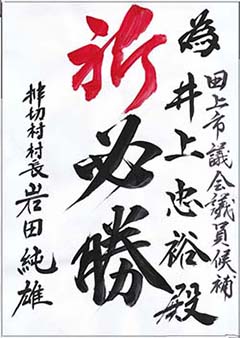 田上市議会議員候補
為井上忠裕殿
祈必勝
推切村村長岩田純雄